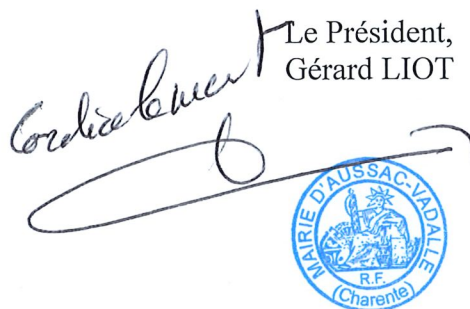 Le Président,
Gérard LIOT
Cordialement
MAIRIE D'AUSSAC-VADALLE
R.F.
(Charente)